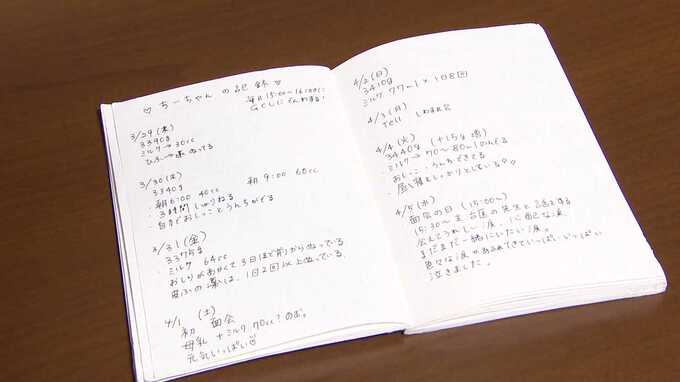 ♡ ちーちゃん の記録 ♡
毎日 15:00〜16:00に
GCUに でんわする!
3/29(水)
3390g
ミルク → 30cc
ひふ → 薬 ぬってる
3/30(木)
3340g
朝6:00 40cc 朝 9:00 60cc
・3時間 しっかりねる
・自分でおしっことうんちがでる
3/31(金)
3375g
・ミルク 64cc
おしりがあかくて3日ほど前からぬっている
皮ふの薬は、1日2回以上ぬっている、
4/1 (土)
初 面会
母乳 + ミルク 70cc のむ。
元気いっぱい
4/2(日)
3410g
ミルク 77ml × 108回
4/3(月)
Tell しわすれ
4/4(火)
3440g (+15g 増)
ミルク → 70〜80ml のんでる
おしっこ、うんちできてる
4/5(水)
面会の日(15:00〜)
15:30〜 主治医の先生と話をする
会えてうれしー涙、心配な涙
まだまだ一緒にいたい涙。
色々な涙があふれてきていっぱいいっぱい
泣きました。